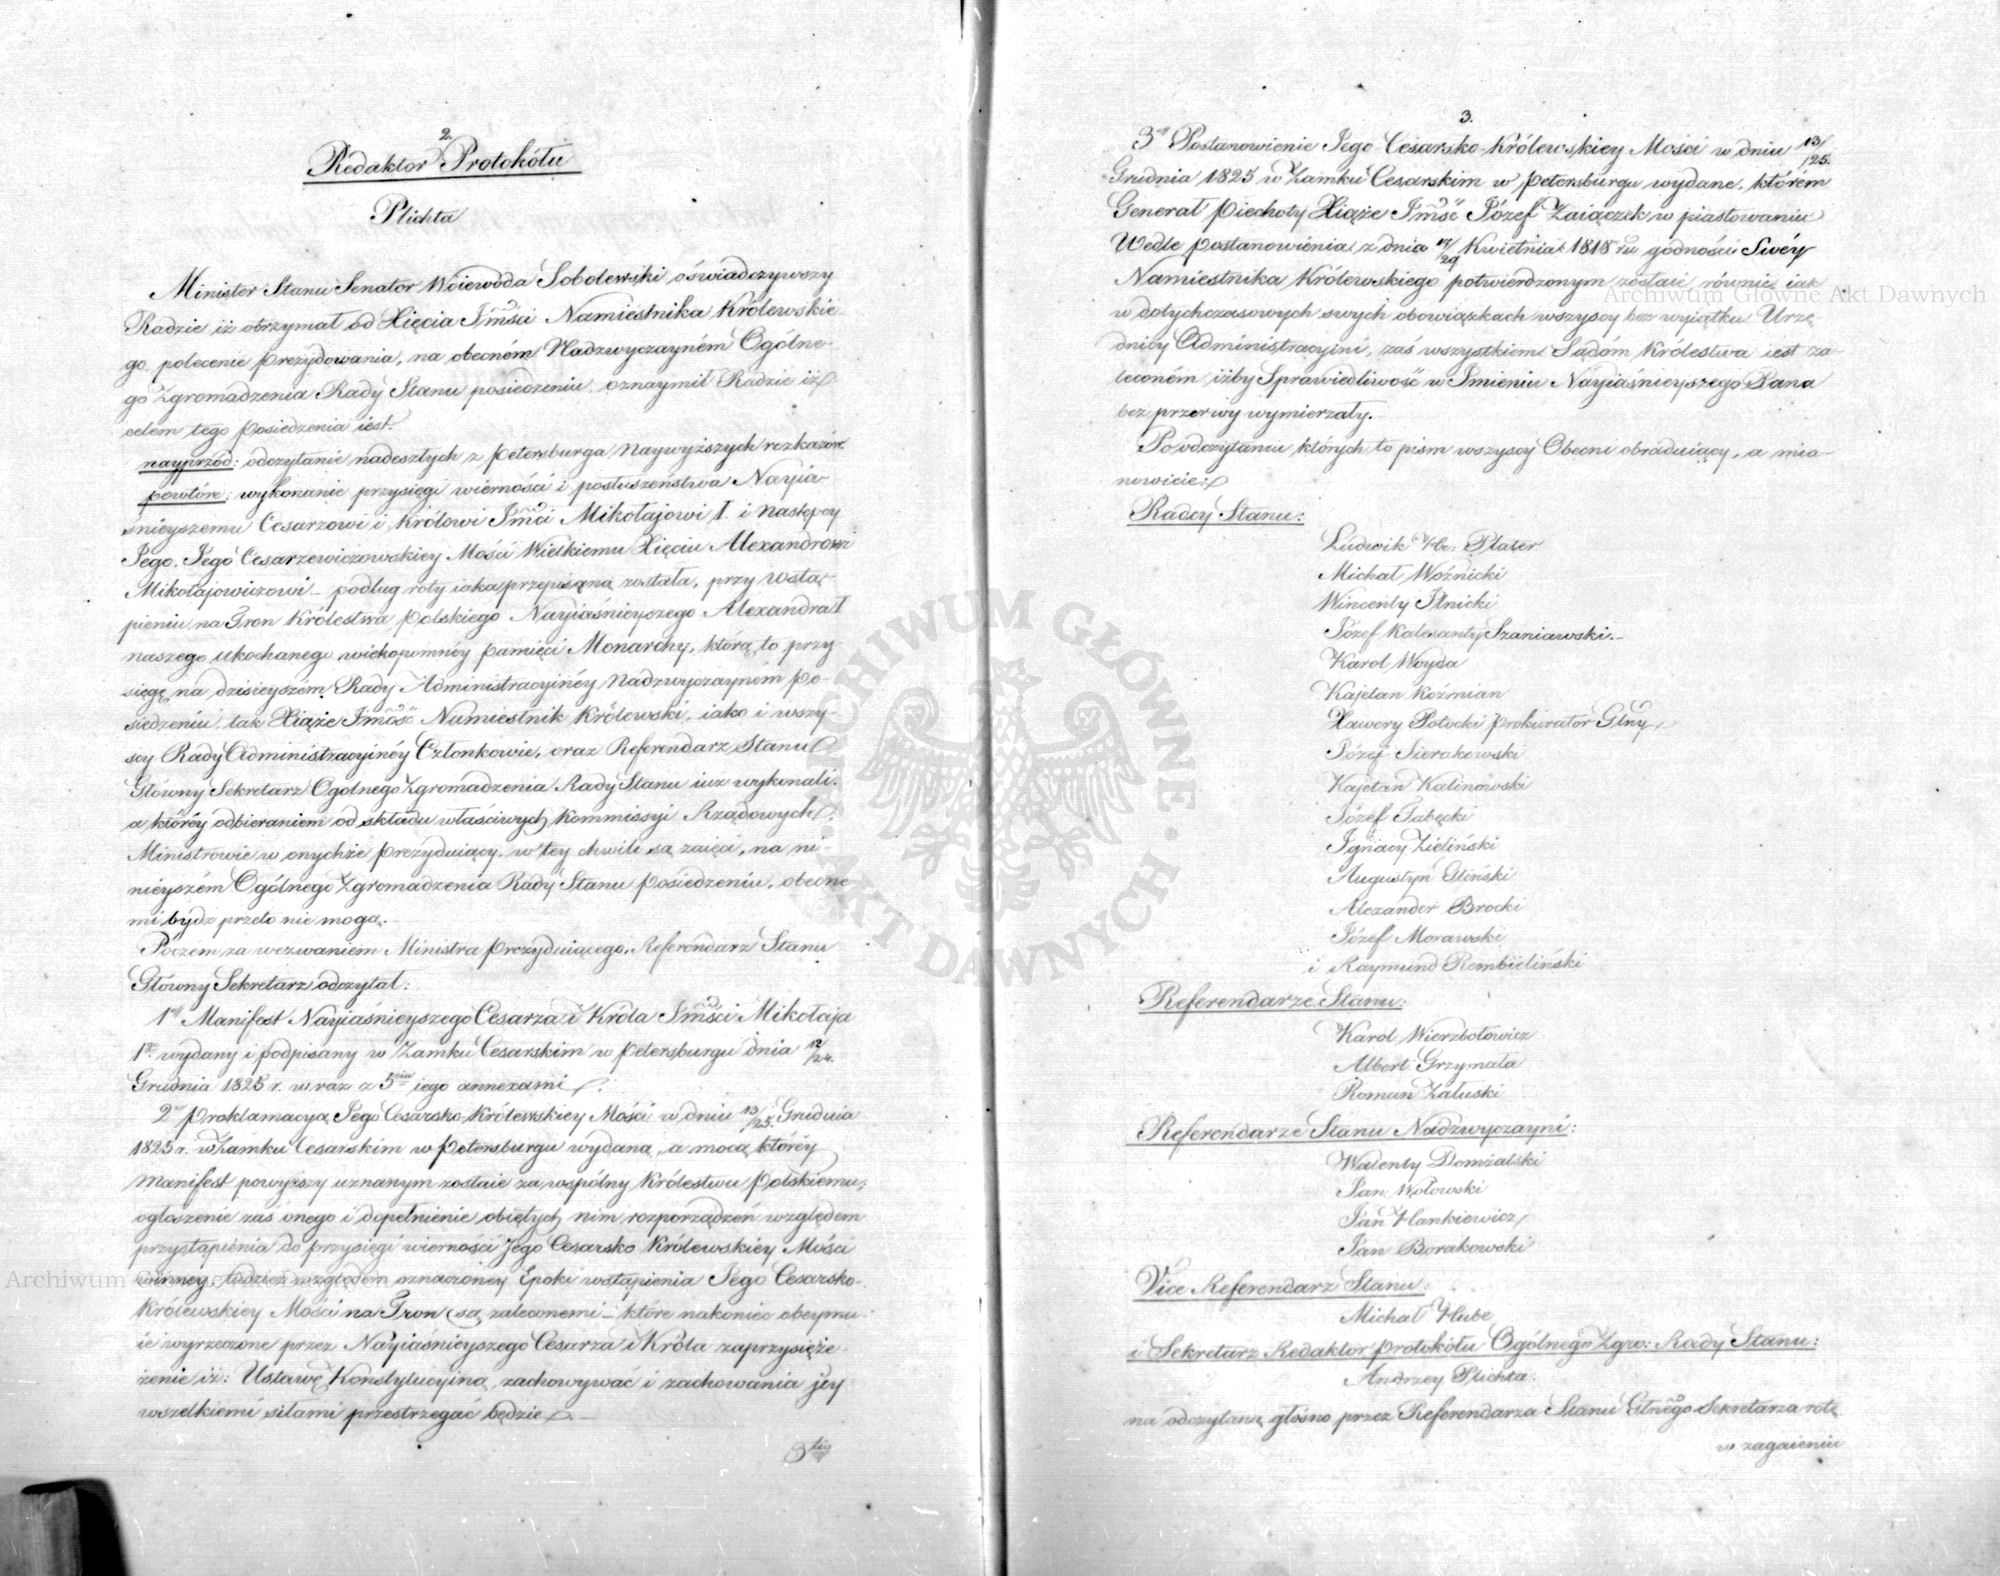 2.
Redaktor Protokółu
Plichta
Minister Stanu Senator Woiewoda Sobolewski oświadczywszy
Radzie iż otrzymał od Xięcia Jmści Namiestnika Królewskie-
go polecenie prezydowania, na obecném Nadzwyczayném Ogólne-
go Zgromadzenia Rady Stanu posiedzeniu, oznaymił Radzie iż
celem tego posiedzenia iest.
nayprzód: odczytanie nadesztych z Petersburga Naywyższych rozkazów.
powtóre: wykonanie przysięgi wierności i posłuszeństwa Nayia-
śnieyszemu Cesarzowi i Królowi Jmści Mikołajowi I. i Następcy
Jego, Jego Cesarzewiczowskiey Mości Wielkiemu Xięciu Alexandrowi
Mikołajowiczowi – podług roty iaka przepisaną została, przy wstą-
pieniu na Tron Królestwa Polskiego Nayiaśnieyszego Alexandra I
naszego ukochanego wiekopomnéy pamięci Monarchy, którą to przy-
sięgę na dzisieyszém Rady Administracyinéy Nadzwyczayném po-
siedzeniu, tak Xiąże Jmość Namiestnik Królewski, iako i wszy-
scy Rady Administracyinéy Członkowie, oraz Referendarz Stanu
Główny Sekretarz Ogolnego Zgromadzenia Rady Stanu iuż wykonali.
a któréy odbieraniem od składu właściwych Kommissyi Rządowych
Ministrowie w onychże prezyduiący, w tey chwili są zaięci, na ni-
nieyszém Ogólnego Zgromadzenia Rady Stanu posiedzeniu, obecne-
mi bydź przeto nie mogą.
Poczem za wezwaniem Ministra prezyduiącego, Referendarz Stanu
Główny Sekretarz odczytał:
1. Manifest Nayiaśnieyszego Cesarza i Króla Jmści Mikołaja
1. wydany i podpisany w Zamku Cesarskim w Petersburgu dnia 12/24.
Grudnia 1825 r. wraz z 5cią iego annexami.
2. Proklamacyą Jego Cesarsko-Królewskiey Mości w dniu 13/25. Grudnia
1825 r. w Zamku Cesarskim w Petersburgu wydaną, a mocą któréy
Manifest powyższy uznanym zostaie za wspólny Królestwu Polskiemu,
ogłoszenie zaś onego i dopełnienie obiętych nim rozporządzeń względem
przystąpienia do przysięgi wierności Jego Cesarsko Królewskiey Mości
winney, tudzież względem oznaczoney Epoki wstąpienia Jego Cesarsko-
Królewskiey Mości na Tron są zaleconemi – które nakoniec obeymu-
ie wyrzeczone przez Nayiaśnieyszego Cesarza i Króla zaprzysięże-
żenie iż: Ustawę Konstytucyiną, zachowywać i zachowania jey
wszelkiemi siłami przestrzegać będzie –
3tie
3.
3. Postanowienie Jego Cesarsko-Królewskiey Mości w dniu 13/25.
Grudnia 1825 w Zamku Cesarskim w Petersburgu wydane, którém
Generał Piechoty Xiąże Jmść Józef Zaiączek w piastowaniu
Wedle postanowienia z dnia 17/29 Kwietnia 1818 ru godności Swéy
Namiestnika Królewskiego potwierdzonym zostaie, równie iak
w dotychczasowych swych obowiązkach wszyscy bez wyiątku Urzę-
dnicy Administracyini, zaś wszystkiem Sądóm Królestwa iest za-
leconém, iżby Sprawiedliwość w Imieniu Nayiaśnieyszego Pana
bez przerwy wymierzały.
Po odczytaniu których to pism wszyscy Obecni obraduiący, a mia-
nowicie:
Radcy Stanu:
Ludwik Hr: Plater
Michał Woźnicki
Wincenty Ilnicki
Józef Kalesanty Szaniawski.
Karol Woyda
Kajetan Koźmian
Xawery Potocki Prokurator Glny
Józef Sierakowski
Kajetan Kalinowski
Józef Tabęcki
Ignacy Zieliński
Augustyn Gliński
Alexander Brocki
Józef Morawski
i Raymund Rembieliński
Referendarze Stanu:
Karol Wierzbołowicz
Albert Grzymała
Roman Załuski
Referendarze Stanu Nadzwyczayni:
Walenty Domżalski
Jan Wołowski
Jan Hankiewicz
Jan Borakowski
Vice Referendarz Stanu:
Michał Hube
i Sekretarz Redaktor Protokółu Ogólnego Zgro: Rady Stanu:
Andrzey Plichta.
na odczytaną głośno przez Referendarza Stanu Głnego Sekretarza rotę
w zagaieniu
Archiwum Główne Akt Dawnych
ARCHIWUM GŁÓWNE AKT DAWNYCH